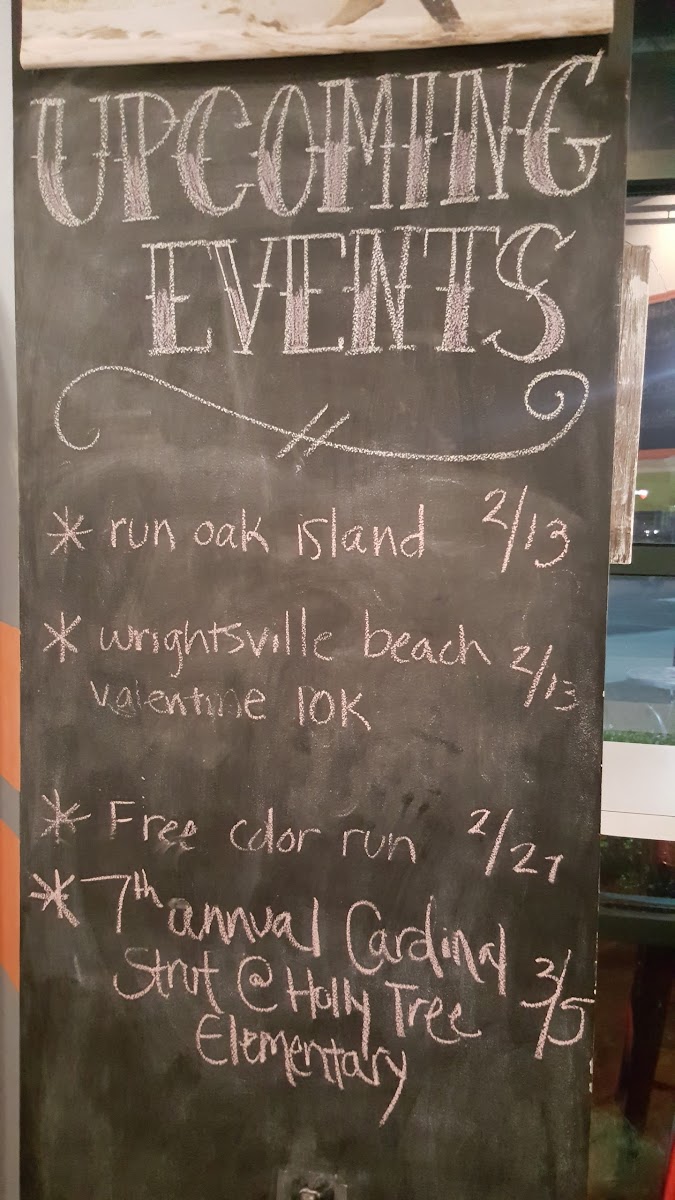 UPCOMING
EVENTS
* run oak island 2/13
* wrightsville beach 2/13
valentine 10K
* Free color run 2/27
* 7th annual Cardinal
Strut @ Holly Tree 3/5
Elementary